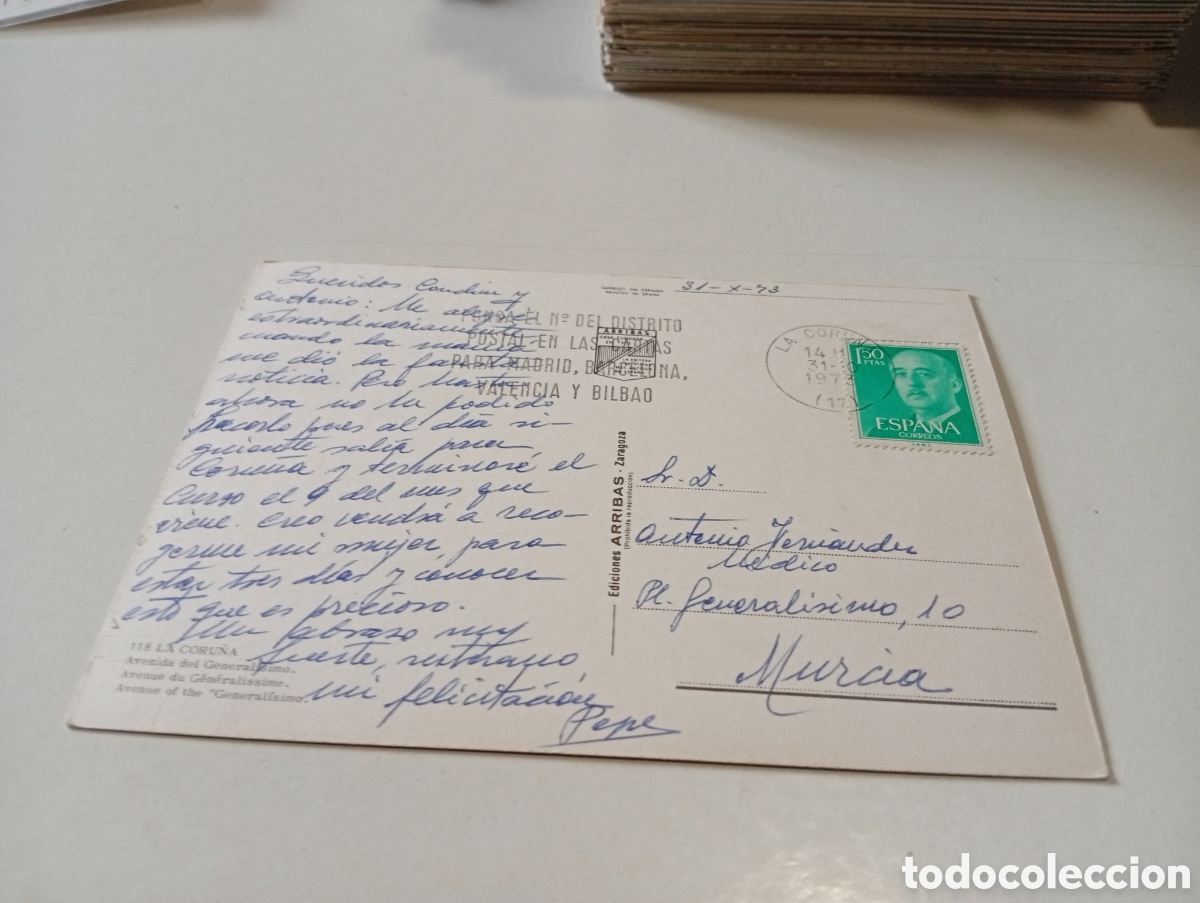 31-X-73
IMPRESO EN ESPAÑA
PRINTED IN SPAIN
Queridos Conchin y
Antonio: Me alegré
extraordinariamente
cuando la
me dió la
noticia. Pero hasta
ahora no he podido
hacerlo pues al día si-
guiente salía para
Coruña y terminaré el
Curso el 9 del mes que
viene. Creo vendrá a reco-
germe mi mujer, para
estar tres días y conocer
esto que es precioso.
Un abrazo muy
fuerte,
mi felicitación
Pepe
118 LA CORUÑA
Avenida del Generalísimo.
Avenue du Généralissime.
Avenue of the "Generalísimo.
PONGA EL Nº DEL DISTRITO
POSTAL EN LAS CARTAS
PARA MADRID, BARCELONA,
VALENCIA Y BILBAO
ARRIBAS
LA CORUÑA
14 H
31-
197
(17)
1'50
PTAS
ESPAÑA
CORREOS
Ediciones ARRIBAS - Zaragoza
(Prohibida la reproducción)
Sr. D.
Antonio Hernández
Médico
Pl. Generalísimo, 10
Murcia
todocoleccion